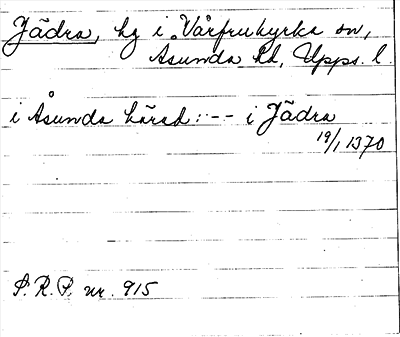 Jädra, hg i Vårfrukyrka sn,
Åsunda hd, Upps. l.
i Åsunda härad: -- i Jädra
19/1 1370
S.R.P. nr. 915